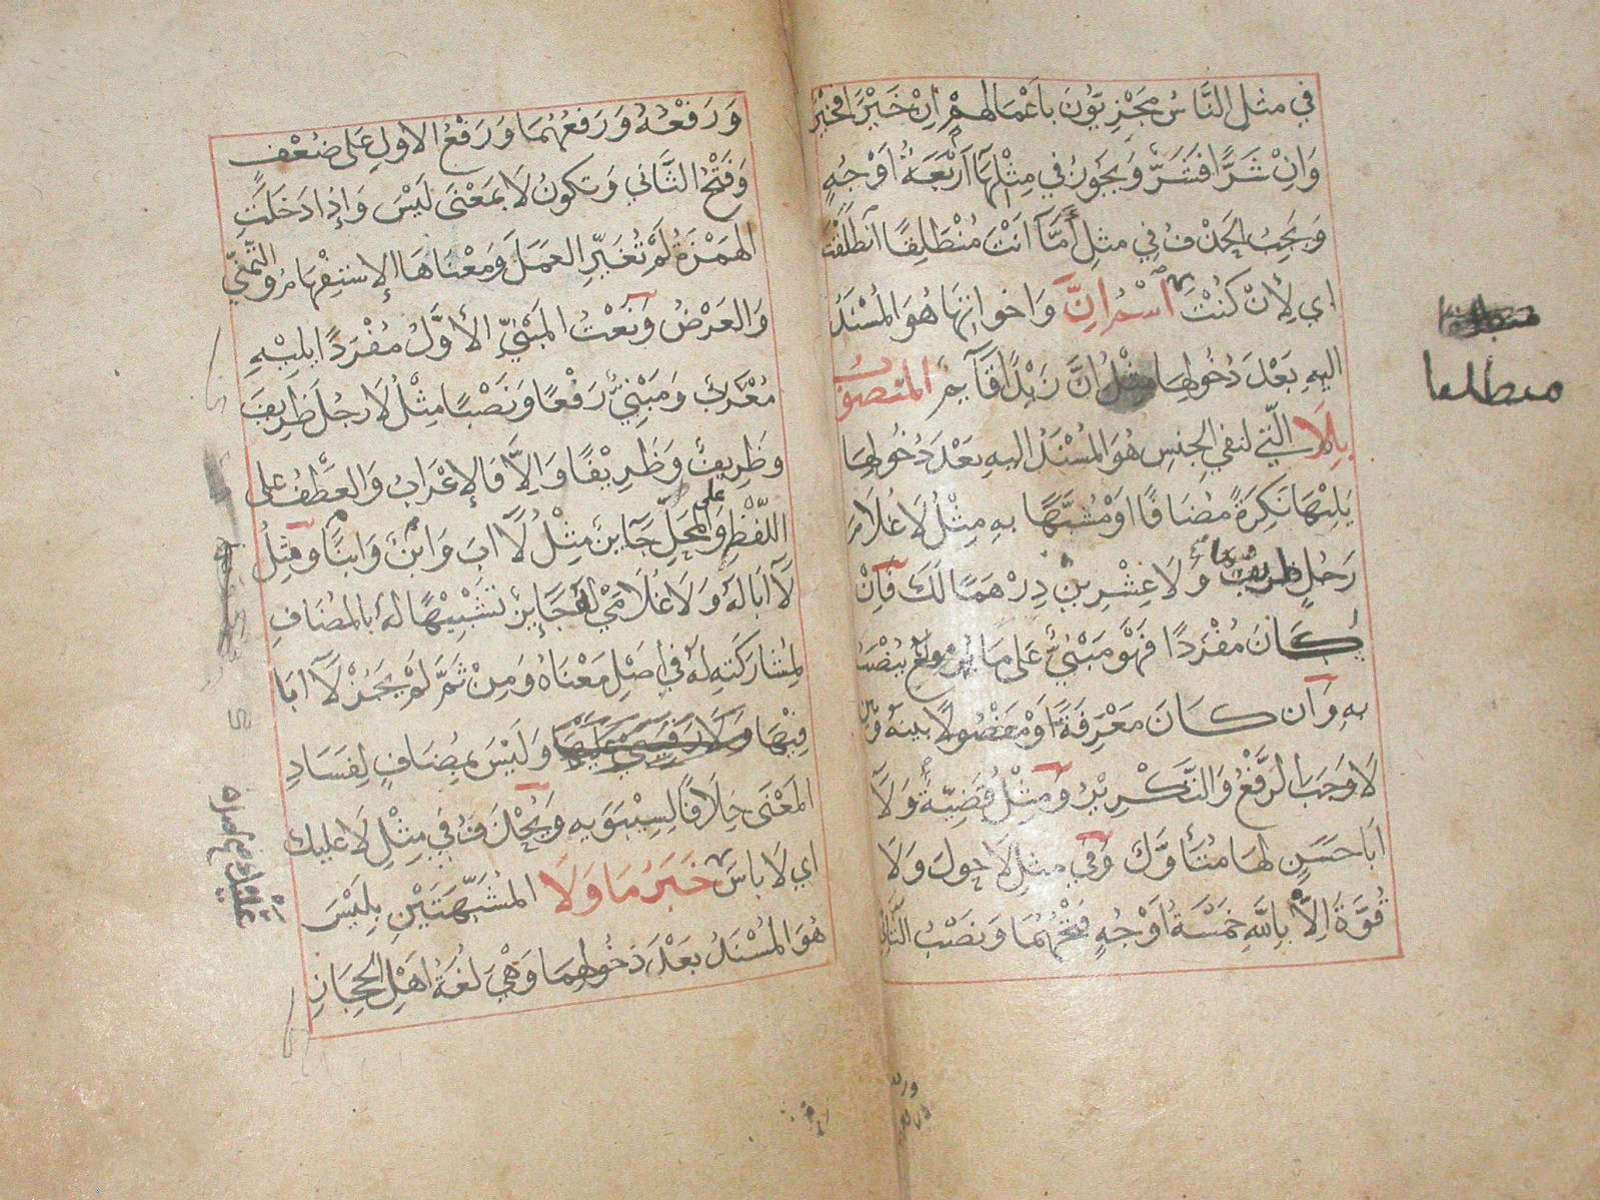 في مثل النَّاسُ مَجْزِيّوُنَ بِاَعْمَالِهِمْ اِنْ خَيْرًا فَخَيْرٌ
وَاِنْ شَرًّا فَشَرٌّ وَيَجُوزُ في مِثْلِهَا اَرْبَعَةُ اَوْجُهٍ
وَيَجِبُ الحَذْفُ فِي مثلِ أَمَّا اَنْتَ مُنْطَلِقًا اَنْطَلَقْتُ
اي لِأَنْ كُنْتَ اسْمُ اِنَّ وَاخواتِهَا هُوَ المُسْنَدُ
اليهِ بَعْدَ دُخُولِهَا مِثْلُ اِنَّ زَيْدًا قَآيِمٌ المنصوُبُ
بِلَا الَّتي لنفي الجنسِ هُوَ المُسْنَدُ اليهِ بعْدَ دُخُولِهَا
يَلِيْهَا نَكِرَةً مُضَافًا اَوْ مُشَبَّهًا بِهِ مِثْلُ لَا غُلَامَ
رَجُلٍ ظريفٌ وَلَا عِشْرِينَ دِرْهَمًا لَكَ فَاِنْ
كَانَ مُفْرَدًا فَهُوَ مَبْنِيٌّ عَلى مَا يُنْصَبُ
بِهِ وَاِن كَانَ مَعْرِفَةً اَوْ مَفْصُولًا بينَهُ وَبَين
لَا وَجَبَ الرَّفْعُ وَالتَّكْرِيْرُ وَمِثْلُ قَضِيَّةٌ وَلَا
اَبَا حَسَنٍ لهَا مُتَأَوَّلٌ وَفي مثلِ لَا حولَ وَلَا
قُوَّةَ اِلاَّ بِاللهِ خَمْسَةُ اَوْجُهٍ فَتْحُهُمَا وَنَصْبُ الثَّانِي
منطلقا
وَرَفْعُهُ وَرَفعُهُمَا وَرَفْعُ الاولِ عَلى ضُعْفٍ
وَفَتْحُ الثَّاني وَتكونُ لَا بمَعْنَى لَيْسَ وَاِذَا دَخَلَتِ
الهَمْزَةُ لَمْ تُغَيِّرِ العَمَلَ وَمَعْنَاهَا الاِستِفْهَامُ وَالتَّمَنِّي
وَالعَرْضُ وَنَعْتُ المَبْنِيِّ الأَوَّلُ مُفْرَدًا يَلِيْهِ
مُعْرَبٌ وَمَبْنِيٌّ رَفْعًا وَنَصْبًا مِثْلُ لَا رَجُلَ ظَرِيفَ
وظَرِيفٌ وَظَرِيْفًا وَاِلاَّ فَالاِعْرَابُ وَالعَطْفُ على
اللَّفْظِ وَعلى المحَلِّ جَآيِزٌ مِثْلُ لَا اَبَ وَابْنٌ وَابنًا وَمِثلُ
لَا اَبَا لَهُ وَلَا غُلَامَيْ لَهُ جَايِزٌ تَشْبِيْهًا لَهُ بِالمُضَافِ
لِمُشَارَكَتِهِ لَهُ في اَصْلِ مَعْنَاهُ وَمِنْ ثَمَّ لَمْ يَجُزْ لَا اَبَا
فِيْهَا وَلَا رَقِيبَيْ عَلَيْهَا وَلَيْسَ بمُضَافٍ لِفَسَادِ
المَعْنَى خِلَافًا لِسِيْبَوَيهِ وَيُحْذَفُ فِي مِثْلِ لَا عليك
اي لَا باسَ خَبَرُ مَا وَلَا المُشَبَّهَتَيْنِ بِلَيْسَ
هُوَ المُسْنَدُ بَعْدَ دُخُولِهِمَا وَهْيَ لُغَةُ اَهْلِ الحِجَازِ